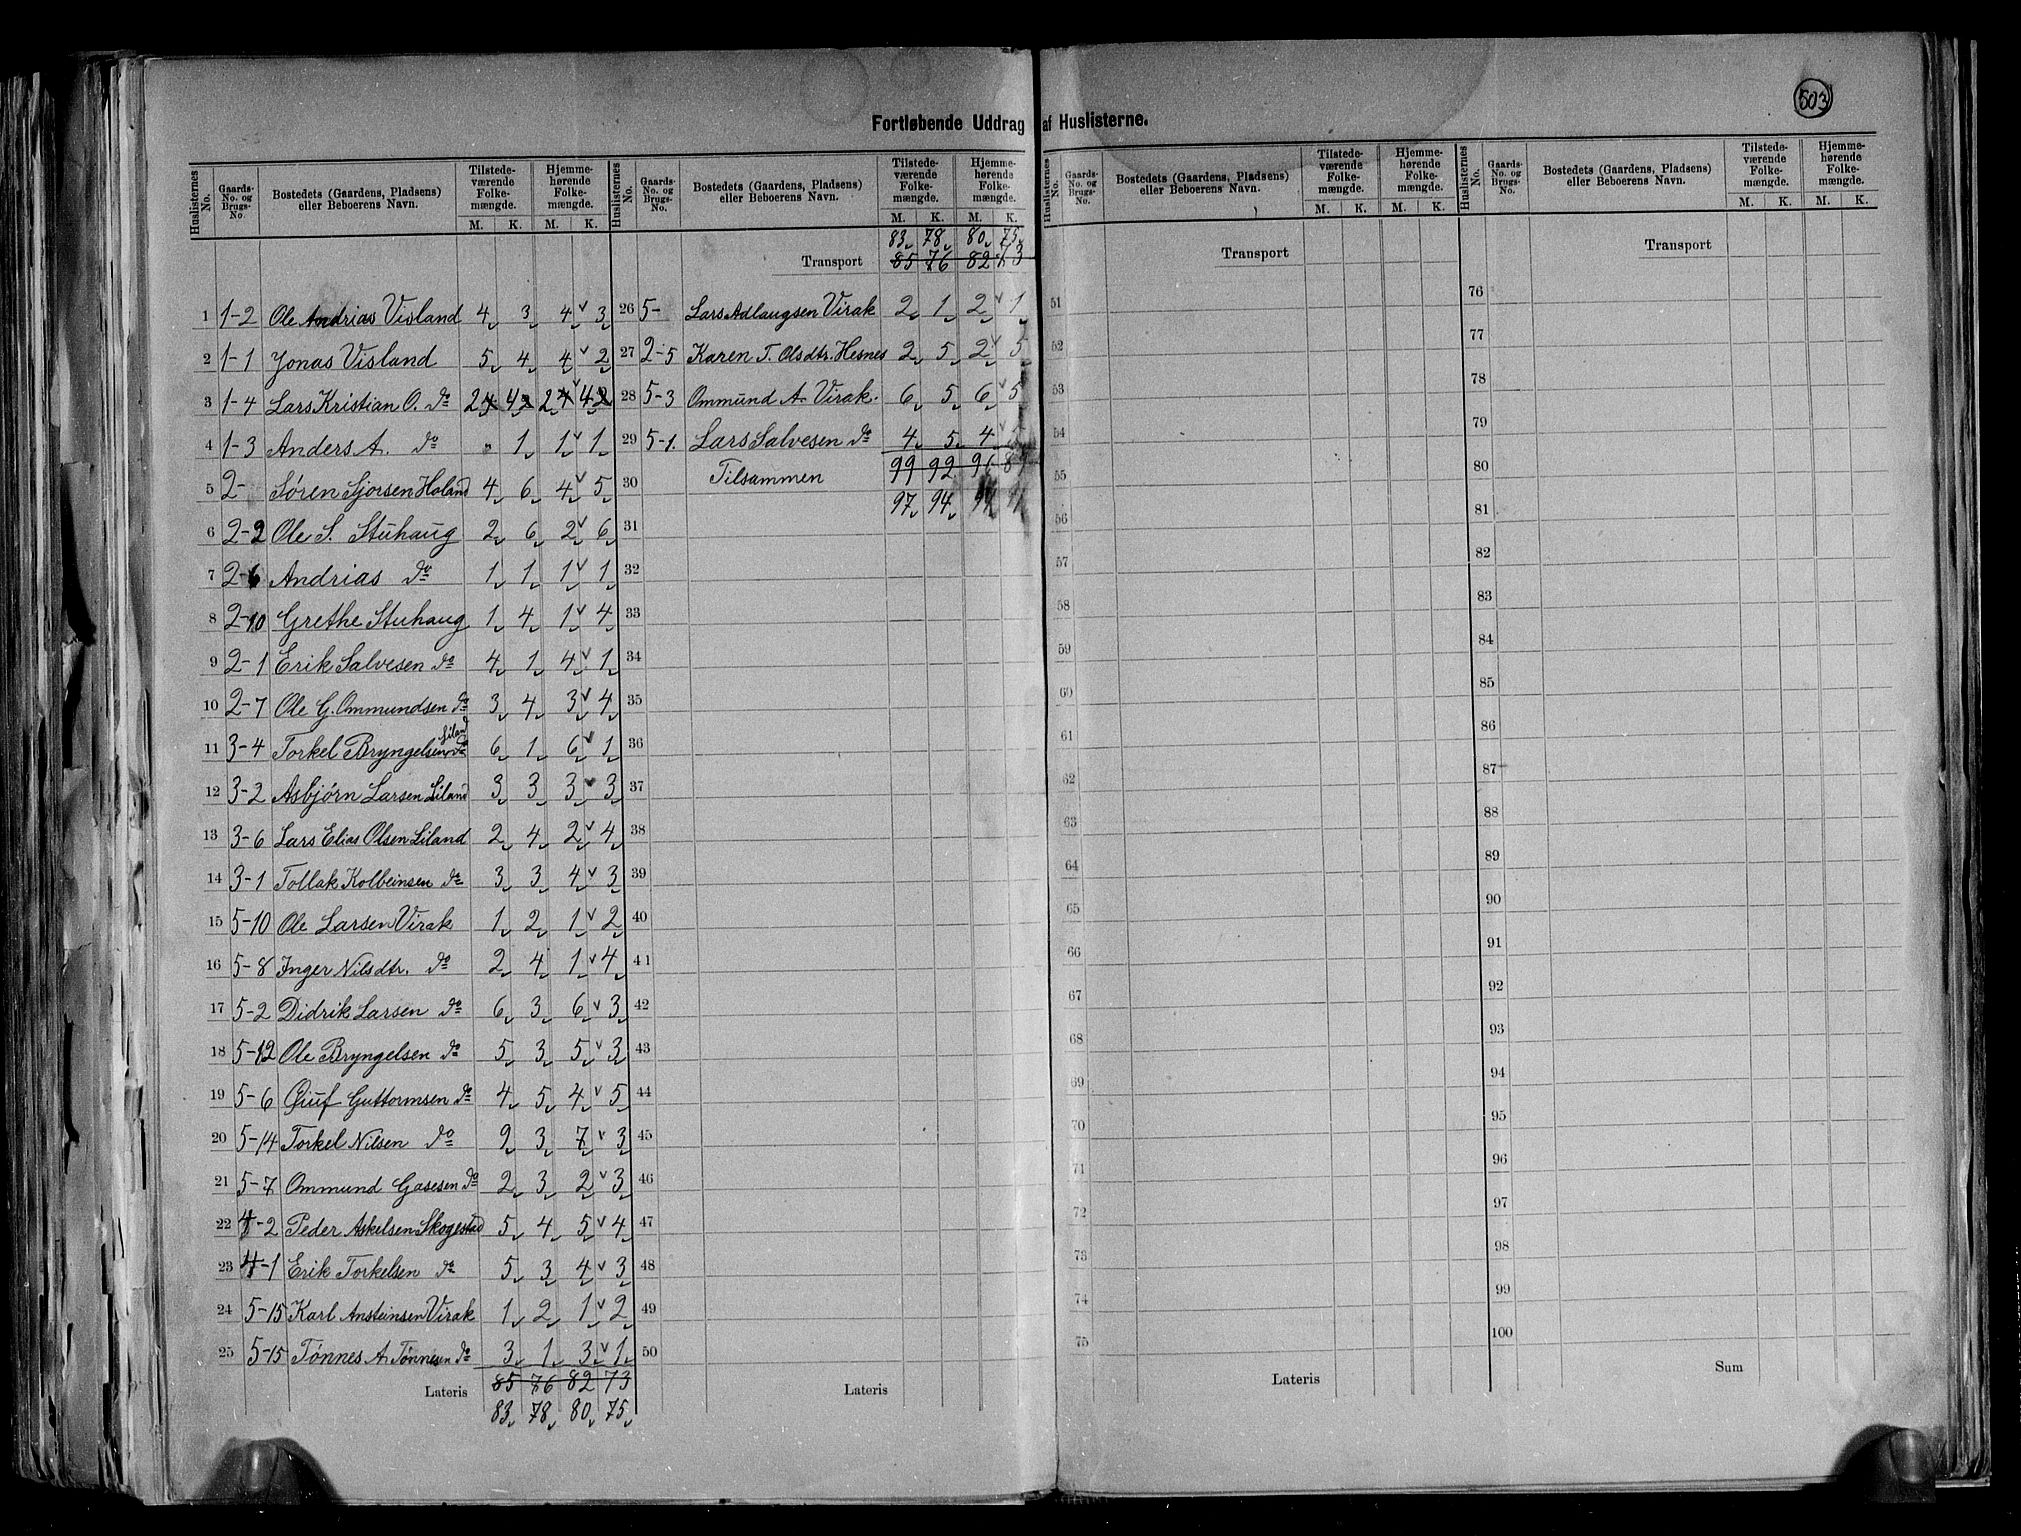 503
Fortløbende Uddrag af Huslisterne.
Huslisternes No. Gaards-No. og Brugs-No. Bostedets (Gaardens, Pladsens) eller Beboerens Navn. Tilstede-værende Folke-mængde. M. K. Hjemme-hørende Folke-mængde. M. K.
1 1-2 Ole Andrias Visland 4 3 4 3
2 1-1 Jonas Visland 5 4 4 2
3 1-4 Lars Kristian O. do 2 4 2 4
4 1-3 Anders A. do " 1 1 1
5 2- Søren Sjorsen Holand 4 6 4 5
6 2-2 Ole S. Stuhaug 2 6 2 6
7 2-6 Andrias do 1 1 1 1
8 2-10 Grethe Stuhaug 1 4 1 4
9 2-1 Erik Salvesen do 4 1 4 1
10 2-7 Ole G. Ommundsen do 3 4 3 4
11 3-4 Torkel Bryngelsen Liland 6 1 6 1
12 3-2 Asbjørn Larsen Liland 3 3 3 3
13 3-6 Lars Elias Olsen Liland 2 4 2 4
14 3-1 Tollak Kolbeinsen do 3 3 4 3
15 5-10 Ole Larsen Virak 1 2 1 2
16 5-8 Inger Nilsdtr. do 2 4 1 4
17 5-2 Didrik Larsen do 6 3 6 3
18 5-12 Ole Bryngelsen do 5 3 5 3
19 5-6 Guttormsen do 4 5 4 5
20 5-14 Torkel Nilsen do 9 3 7 3
21 5-7 Ommund Gasesen do 2 3 2 3
22 4-2 Peder Askelsen Skogestad 5 4 5 4
23 4-1 Erik Torkelsen do 5 3 4 3
24 5-15 Karl Ansteinsen Virak 1 2 1 2
25 5-15 Tønnes A. Tønnesen do 3 1 3 1
85 76 82 73
Lateris
83 78 80 75
Huslisternes No. Gaards-No. og Brugs-No. Bostedets (Gaardens, Pladsens) eller Beboerens Navn. Tilstede-værende Folke-mængde. M. K. Hjemme-hørende Folke-mængde. M. K.
83 78 80 75
Transport 85 76 82 73
26 5- Lars Adlaugsen Virak 2 1 2 1
27 2-5 Karen T. Olsdtr. Hesnes 2 5 2 5
28 5-3 Ommund A. Virak 6 5 6 5
29 5-1. Lars Salvesen do 4 5 4
99 92
30 Tilsammen
97 94
31
32
33
34
35
36
37
38
39
40
41
42
43
44
45
46
47
48
49
50
Lateris
Huslisternes No. Gaards-No. og Brugs-No. Bostedets (Gaardens, Pladsens) eller Beboerens Navn. Tilstede-værende Folke-mængde. M. K. Hjemme-hørende Folke-mængde. M. K.
Transport
51
52
53
54
55
56
57
58
59
60
61
62
63
64
65
66
67
68
69
70
71
72
73
74
75
Lateris
Huslisternes No. Gaards-No. og Brugs-No. Bostedets (Gaardens, Pladsens) eller Beboerens Navn. Tilstede-værende Folke-mængde. M. K. Hjemme-hørende Folke-mængde. M. K.
Transport
76
77
78
79
80
81
82
83
84
85
86
87
88
89
90
91
92
93
94
95
96
97
98
99
100
Sum